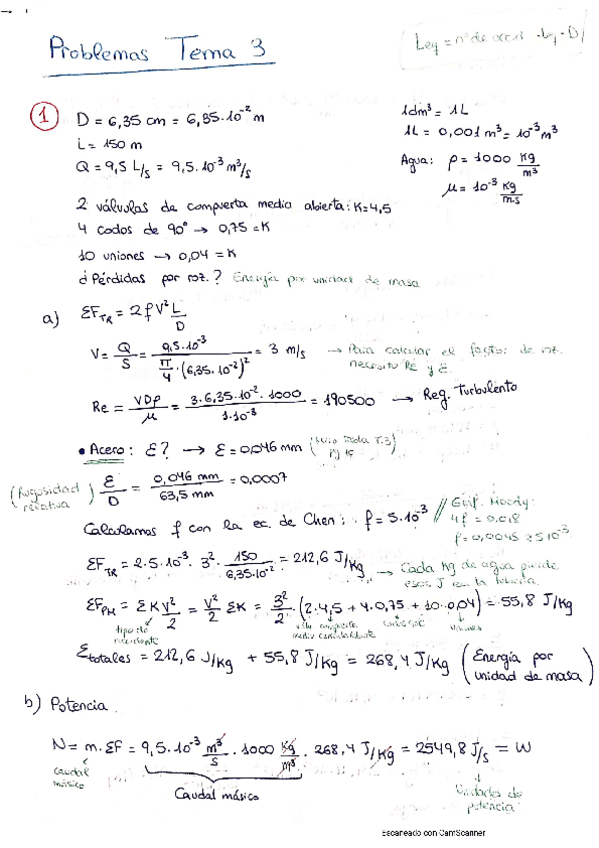 Problemas Tema 3
Leq = nº de acces · Leq · D
1
D = 6,35 cm = 6,35·10⁻² m
L = 150 m
Q = 9,5 L/s = 9,5·10⁻³ m³/s
1dm³ = 1L
1L = 0,001 m³ = 10⁻³ m³
Agua: ρ = 1000 Kg/m³
μ = 10⁻³ Kg/m·s
2 válvulas de compuerta media abierta: K=4,5
4 codos de 90° → 0,75 = K
10 uniones → 0,04 = K
¿Pérdidas por roz.? Energía por unidad de masa
a) ΣF_TR = 2fV² L/D
V = Q/S = 9,5·10⁻³ / (π/4 · (6,35·10⁻²)²) = 3 m/s → Para calcular el factor de roz. necesito Re y ε.
Re = VDρ/μ = 3·6,35·10⁻²·1000 / 1·10⁻³ = 190500 → Reg. Turbulento
• Acero: ε? → ε = 0,046 mm
(Rugosidad relativa) ε/D = 0,046 mm / 63,5 mm = 0,0007
Calculamos f con la ec. de Chen: f = 5·10⁻³ // Gráf. Moody:
4f = 0,018
f = 0,0045 ≈ 5·10⁻³
ΣF_TR = 2·5·10⁻³ · 3² · 150 / 6,35·10⁻² = 212,6 J/Kg → Cada Kg de agua pierde esos J en la tubería.
ΣF_PM = ΣK V²/2 = V²/2 ΣK = 3²/2 · (2·4,5 + 4·0,75 + 10·0,04) = 55,8 J/Kg
tipo de accidente
uniones
Σtotales = 212,6 J/Kg + 55,8 J/Kg = 268,4 J/Kg (Energía por unidad de masa)
b) Potencia.
N = m·ΣF = 9,5·10⁻³ m³/s · 1000 Kg/m³ · 268,4 J/Kg = 2549,8 J/s = W
caudal másico
Caudal másico
Unidades de potencia
Escaneado con CamScanner